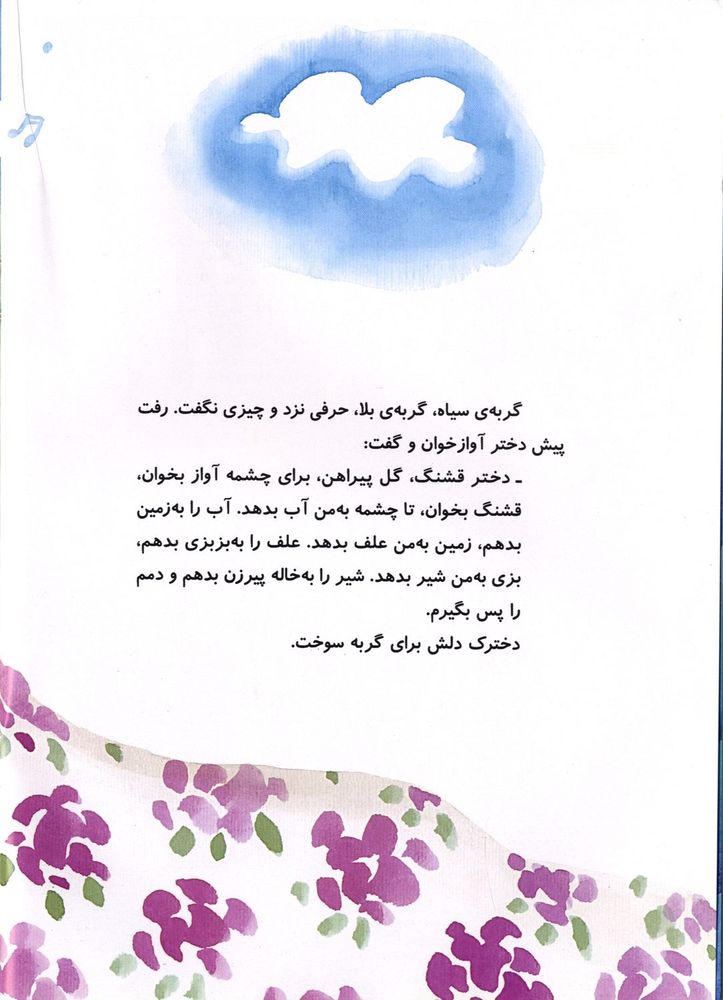 گربه‌ی سیاه، گربه‌ی بلا، حرفی نزد و چیزی نگفت. رفت
پیش دختر آوازخوان و گفت:
ـ دختر قشنگ، گل پیراهن، برای چشمه آواز بخوان،
قشنگ بخوان، تا چشمه به‌من آب بدهد. آب را به‌زمین
بدهم، زمین به‌من علف بدهد. علف را به‌بزبزی بدهم،
بزی به‌من شیر بدهد. شیر را به‌خاله پیرزن بدهم و دمم
را پس بگیرم.
دخترک دلش برای گربه سوخت.